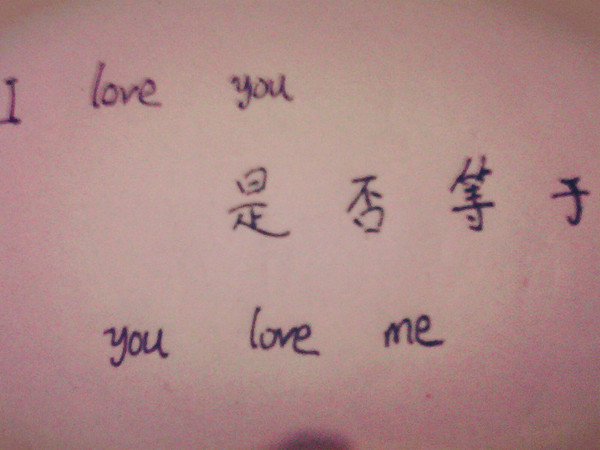 I love you
是否等于
you love me